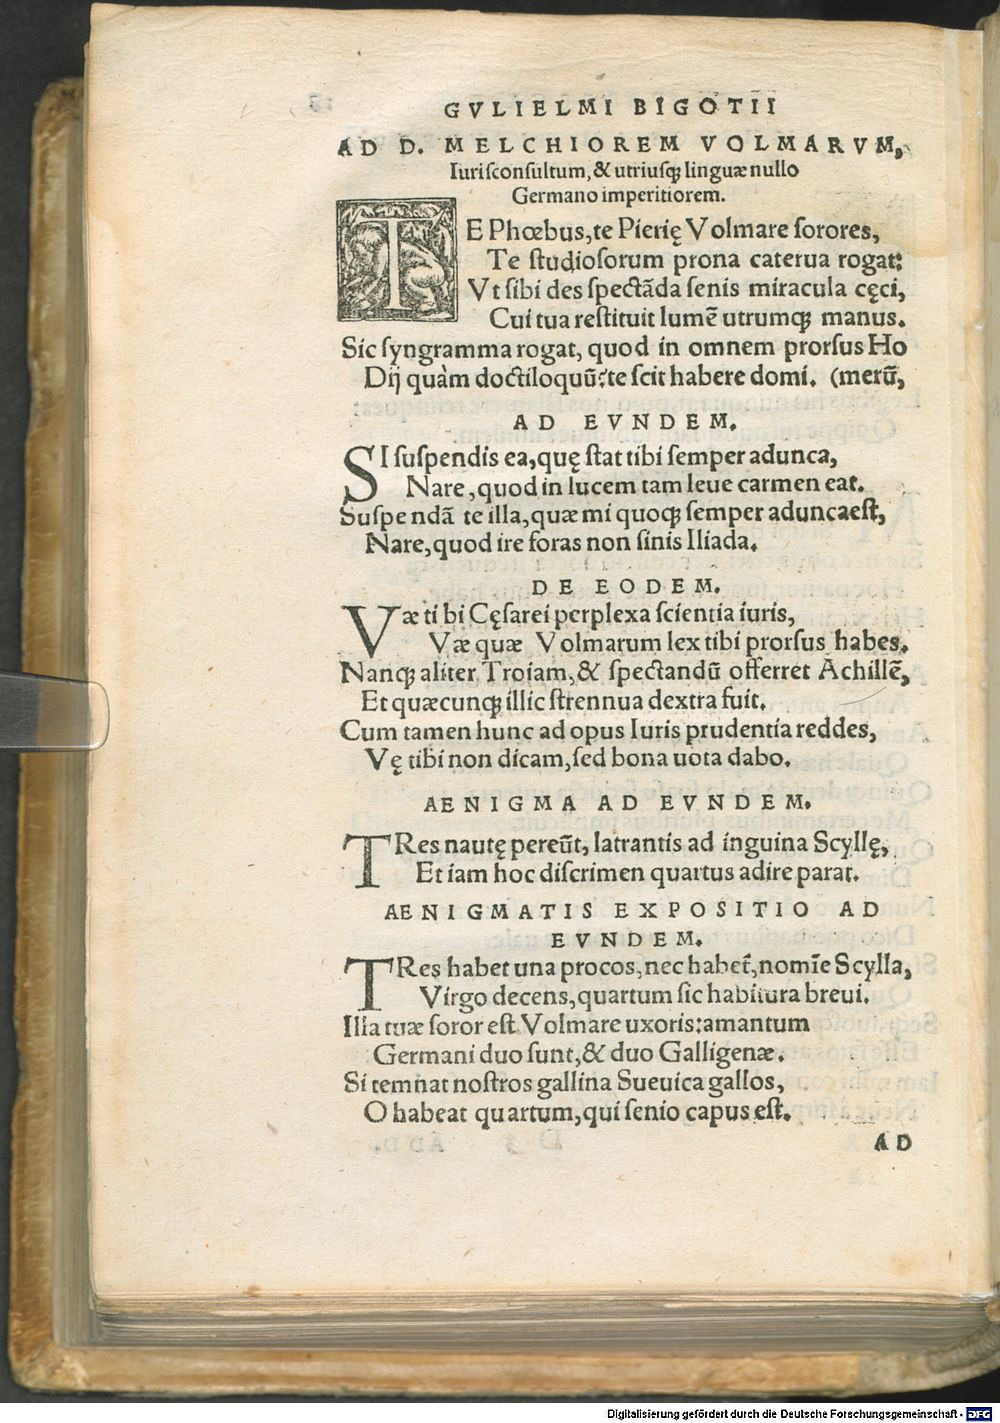 GVLIELMI BIGOTII
AD D. MELCHIOREM VOLMARVM,
Iurisconsultum, & utriusq; linguæ nullo
Germano imperitiorem.
TE Phœbus, te Pierię Volmare sorores,
Te studiosorum prona caterua rogat:
Vt sibi des spectãda senis miracula cęci,
Cui tua restituit lumẽ utrumq; manus.
Sic syngramma rogat, quod in omnem prorsus Ho
Dij quàm doctiloquũ? te scit habere domi. (merũ,
AD EVNDEM.
SI suspendis ea, quę stat tibi semper adunca,
Nare, quod in lucem tam leue carmen eat.
Suspendã te illa, quæ mi quoq; semper aduncaest,
Nare, quod ire foras non sinis Iliada.
DE EODEM.
Væ ti bi Cęsarei perplexa scientia iuris,
Væ quæ Volmarum lex tibi prorsus habes.
Nanq; aliter Troiam, & spectandũ offerret Achillẽ,
Et quæcunq; illic strennua dextra fuit.
Cum tamen hunc ad opus Iuris prudentia reddes,
Vę tibi non dicam, sed bona uota dabo.
AENIGMA AD EVNDEM.
TRes nautę pereũt, latrantis ad inguina Scyllę,
Et iam hoc discrimen quartus adire parat.
AENIGMATIS EXPOSITIO AD
EVNDEM.
TRes habet una procos, nec habet, nomĩe Scylla,
Virgo decens, quartum sic habitura breui.
Illa tuæ soror est Volmare uxoris: amantum
Germani duo sunt, & duo Galligenæ.
Si temnat nostros gallina Sueuica gallos,
O habeat quartum, qui senio capus est.
AD
Digitalisierung gefördert durch die Deutsche Forschungsgemeinschaft - DFG